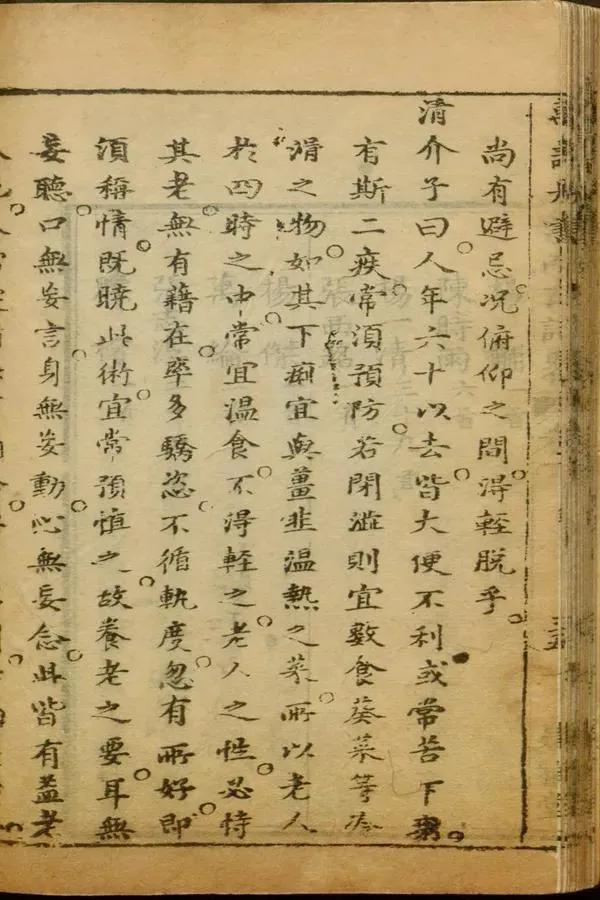 尚有避忌况俯仰之間得輕脫乎
清介子曰人年六十以去皆大便不利或常苦下痢
有斯二疾常須預防若閉澁則宜數食葵菜等冷
滑之物如其下痢宜與薑韭温熱之菜所以老人
於四時之中常宜温食不得輕之老人之性必恃
其老無有藉在率多驕恣不循軌度忽有所好即
須稱情既曉此術宜常預慎之故養老之要耳無
妄聽口無妄言身無妄動心無妄念此皆有益老